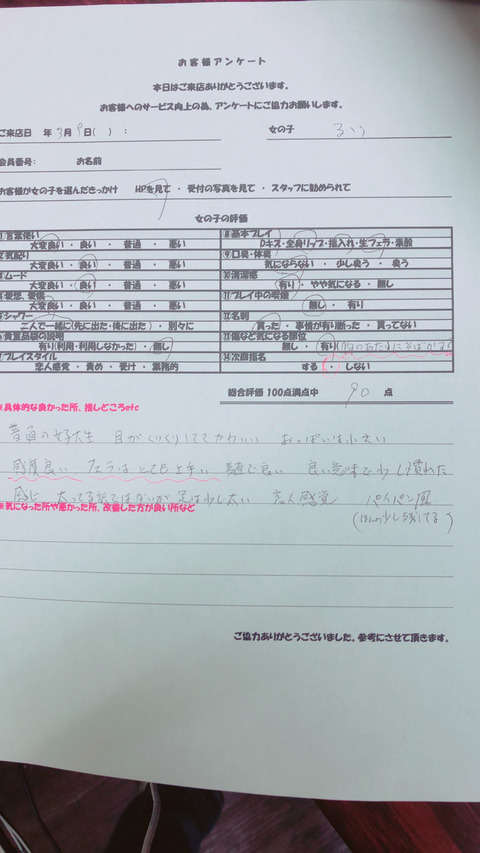 お客様アンケート
本日はご来店ありがとうございます。
お客様へのサービス向上の為、アンケートにご協力お願いします。
ご来店日 年 3月 9日( ) : 女の子 るう
会員番号: お名前
お客様が女の子を選んだきっかけ HPを見て ・ 受付の写真を見て ・ スタッフに勧められて
女の子の評価
言葉使い
大変良い ・ 良い ・ 普通 ・ 悪い
気配り
大変良い ・ 良い ・ 普通 ・ 悪い
ムード
大変良い ・ 良い ・ 普通 ・ 悪い
愛想、愛嬌
大変良い ・ 良い ・ 普通 ・ 悪い
シャワー
二人で一緒(先に出た・後に出た) ・ 別々に
貴重品袋の説明
有り(利用・利用しなかった) ・ 無し
プレイスタイル
恋人感覚 ・ 責め ・ 受け ・ 業務的
8 基本プレイ
Dキス・全身リップ・指入れ・生フェラ・素股
9 口臭・体臭
気にならない ・ 少し臭う ・ 臭う
10 清潔感
有り ・ やや気になる ・ 無し
11 プレイ中の喫煙
無し ・ 有り
12 名刺
貰った ・ 事情が有り断った ・ 貰ってない
13 傷など気になる部位
無し ・ 有り(胸のあたりにそばかす)
14 次回指名
する ・ しない
総合評価 100点満点中 90 点
※具体的な良かった所、推しどころetc
普通の女子大生 目がくりくりしててかわいい おっぱいは小さい
感度良い フェラはとても上手い 素直で良い 良い意味で少し慣れた
感じ 太ってる訳ではないが足は少し太い 恋人感覚 パイパン風
(ほんの少し残してる)
※気になった所や悪かった所、改善した方が良い所など
ご協力ありがとうございました。参考にさせて頂きます。